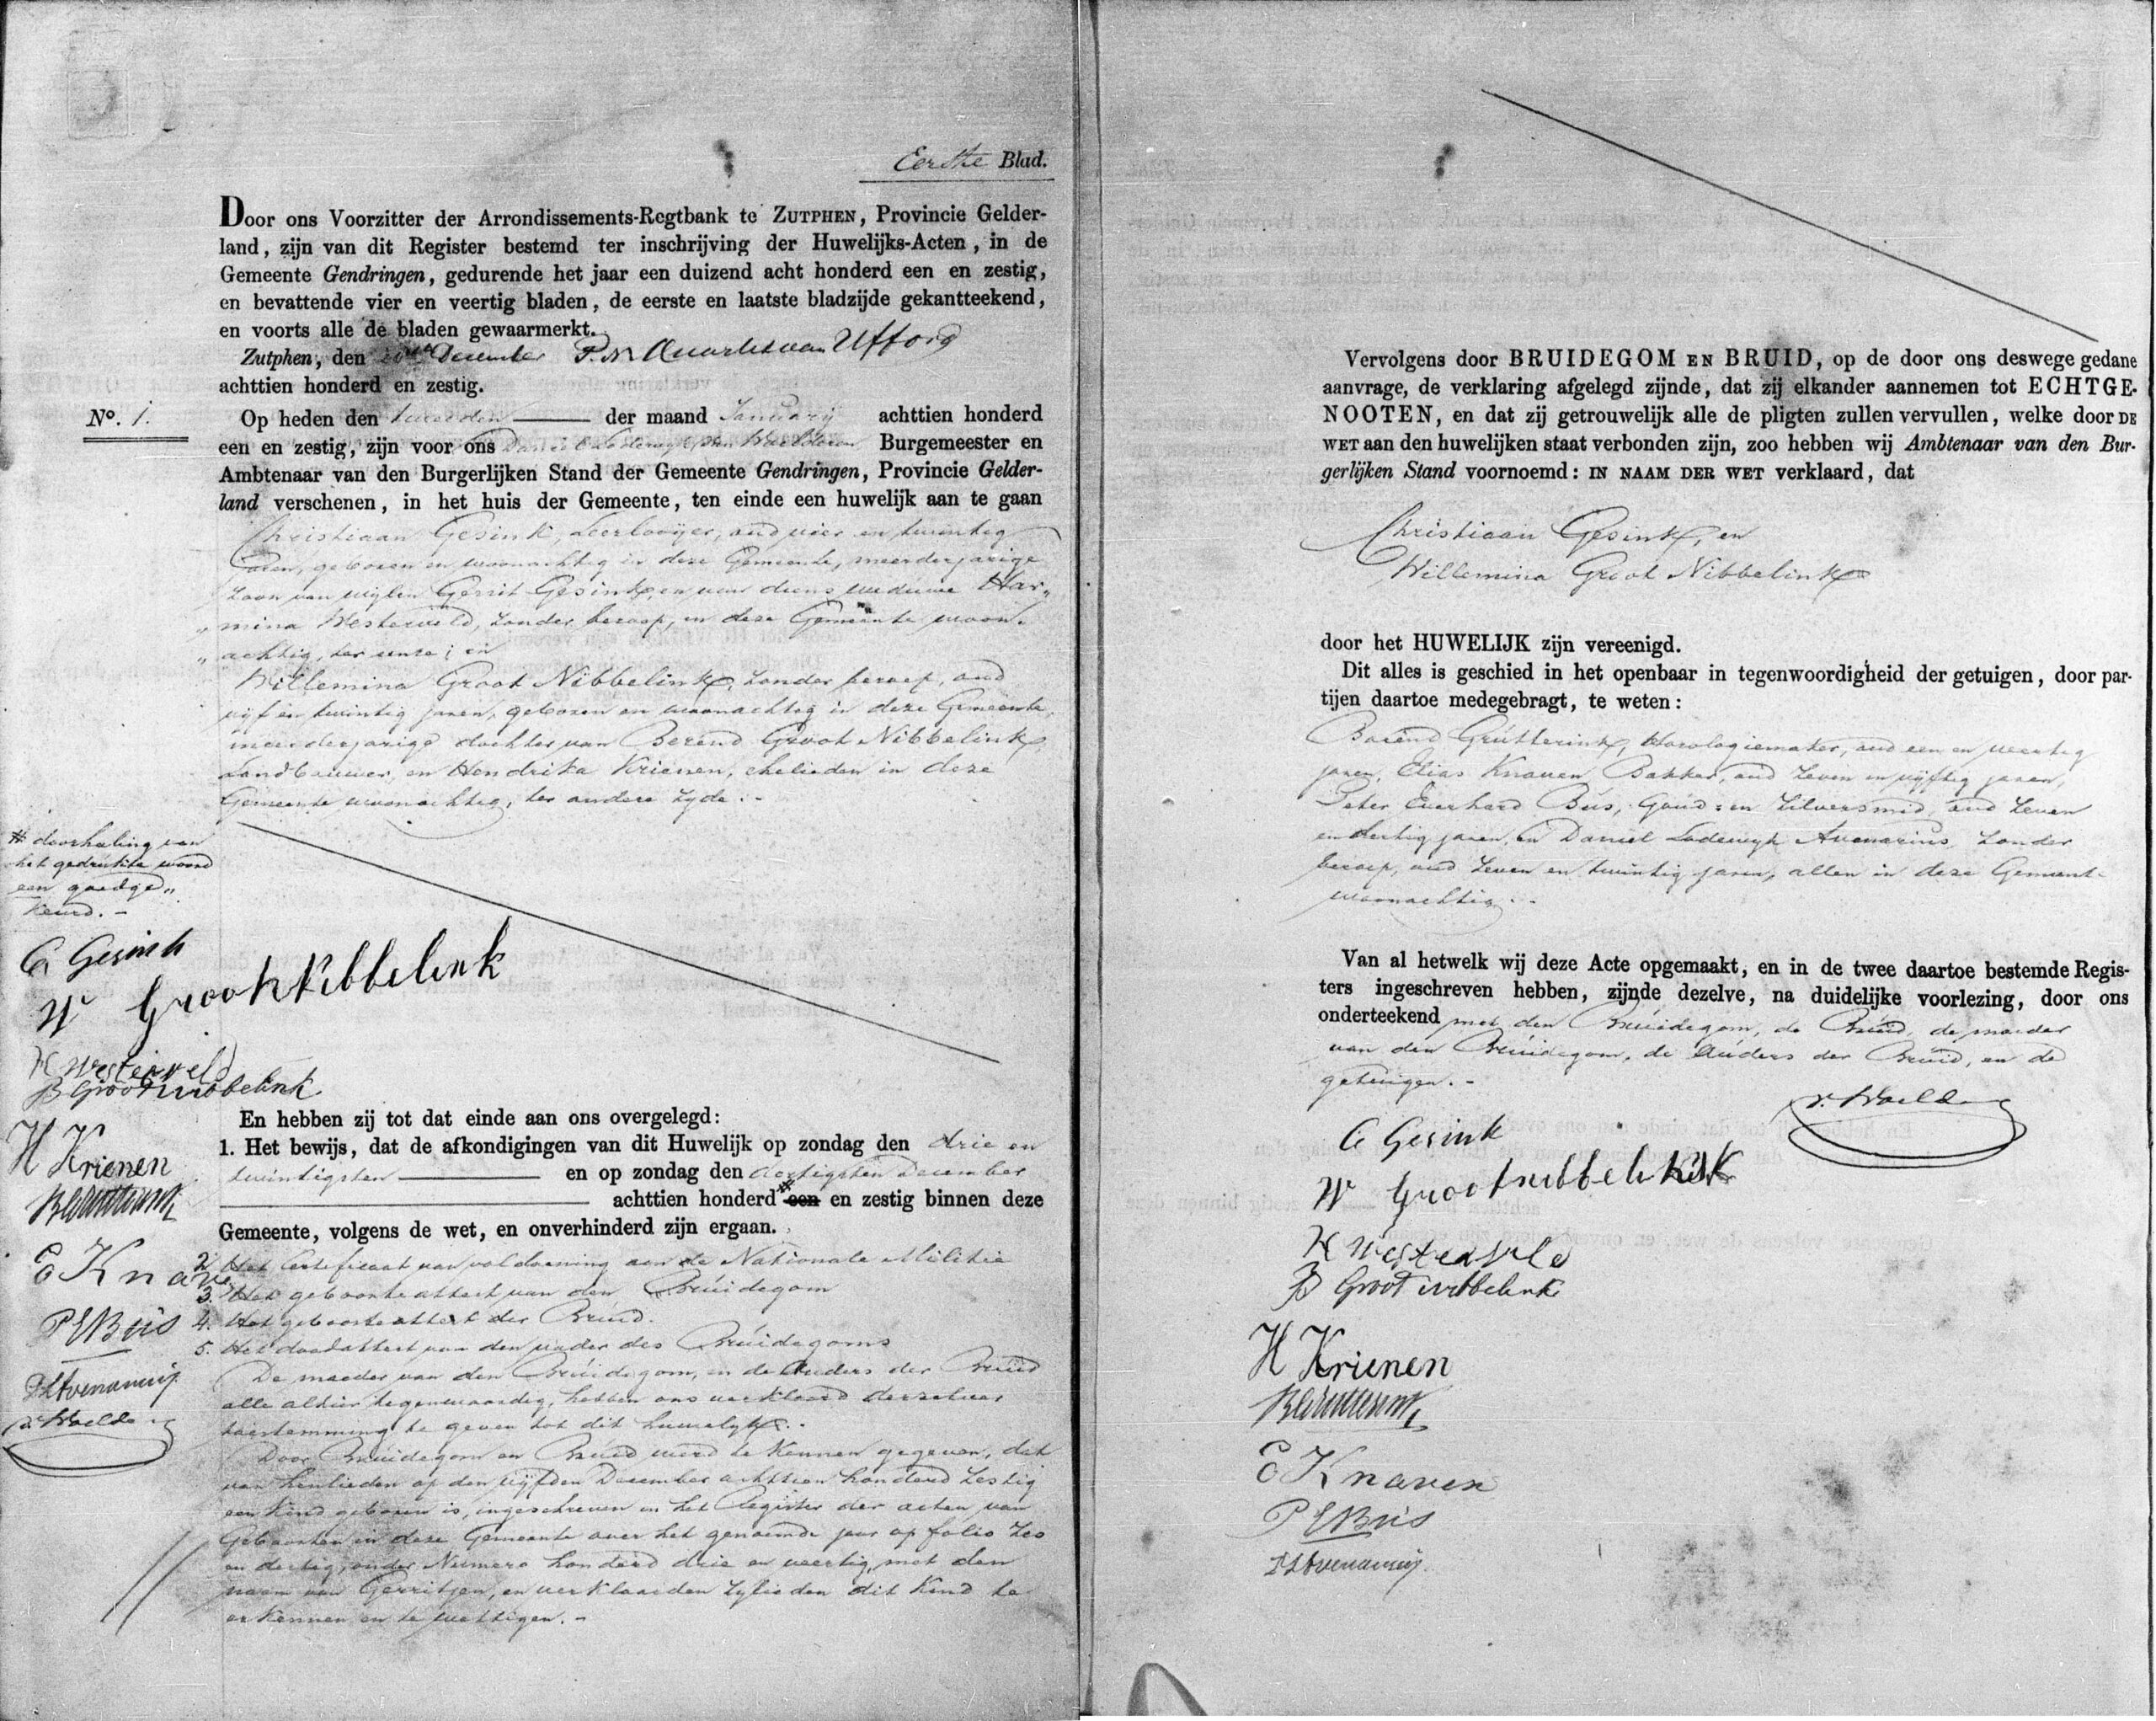 Eerste Blad.
Door ons Voorzitter der Arrondissements-Regtbank te ZUTPHEN, Provincie Gelder-
land, zijn van dit Register bestemd ter inschrijving der Huwelijks-Acten, in de
Gemeente Gendringen, gedurende het jaar een duizend acht honderd een en zestig,
en bevattende vier en veertig bladen, de eerste en laatste bladzijde gekantteekend,
en voorts alle de bladen gewaarmerkt.
Zutphen, den December Quarles van Ufford
achttien honderd en zestig.
No. 1.
Op heden den tweeden der maand Januarij achttien honderd
een en zestig, zijn voor ons Daniel Lodewijk van Burgemeester en
Ambtenaar van den Burgerlijken Stand der Gemeente Gendringen, Provincie Gelder-
land verschenen, in het huis der Gemeente, ten einde een huwelijk aan te gaan
Christiaan Gesink, Leerlooijer, oud vier en twintig
Jaren, geboren en woonachtig in deze Gemeente, meerderjarige
Zoon van wijlen Gerrit Gesink, en van diens weduwe Har„
„mina Westerveld, Zonder beroep, in deze Gemeente woon„
„achtig, ter eenre; en
Willemina Groot Nibbelink, Zonder beroep, oud
vijf en twintig jaren, geboren en woonachtig in deze Gemeente,
meerderjarige dochter van Berend Groot Nibbelink,
Landbouwer, en Hendrika Krienen, ehelieden in deze
Gemeente woonachtig, ter andere zyde.-
# doorhaling van
het gedrukte woord
een goedge„
keurd.-
C Gesink
W Groot Nibbelink
H Westerveld
B Groot nibbelink
H Krienen
E Knaven
P E Bùs
En hebben zij tot dat einde aan ons overgelegd:
1. Het bewijs, dat de afkondigingen van dit Huwelijk op zondag den drie en
twintigsten en op zondag den dertigsten December
achttien honderd # een en zestig binnen deze
Gemeente, volgens de wet, en onverhinderd zijn ergaan.
2. Het Certificaat van voldoening aan de Nationale Militie
3. Het geboorteattest van den Bruidegom
4. Het geboorteattest der Bruid.
5. Het doodattest van den vader des Bruidegoms
De moeder van den Bruidegom, en de Ouders der Bruid
alle alhier tegenwoordig, hebben ons verklaard derzelver
toestemming te geven tot dit huwelyk.-
Door Bruidegom en Bruid werd te kennen gegeven, dat
van henlieden op den vijfden December achttien honderd Zestig
een kind geboren is, ingeschreven in het Register der acten van
Geboorten in deze Gemeente over het genoemde jaar op folio Zes
en dertig, onder Numero honderd drie en veertig, met den
naam van Gerritjen, en verklaarden zylieden dit Kind te
erkennen en te wettigen.-
Vervolgens door BRUIDEGOM EN BRUID, op de door ons deswege gedane
aanvrage, de verklaring afgelegd zijnde, dat zij elkander aannemen tot ECHTGE-
NOOTEN, en dat zij getrouwelijk alle de pligten zullen vervullen, welke door DE
WET aan den huwelijken staat verbonden zijn, zoo hebben wij Ambtenaar van den Bur-
gerlijken Stand voornoemd: IN NAAM DER WET verklaard, dat
Christiaan Gesink, en
Willemina Groot Nibbelink
door het HUWELIJK zijn vereenigd.
Dit alles is geschied in het openbaar in tegenwoordigheid der getuigen, door par-
tijen daartoe medegebragt, te weten:
Barend Grutterink, Horologiemaker, oud een en veertig
jaren, Elias Knaven, Bakker, oud Zeven en vijftig jaren,
Peter Everhard Bùs, Goud= en Zilversmid, oud Zeven
en dertig jaren, en Daniel Lodewyk Avenarius, Zonder
beroep, oud Zeven en twintig jaren, allen in deze Gemeente
woonachtig.-
Van al hetwelk wij deze Acte opgemaakt, en in de twee daartoe bestemde Regis-
ters ingeschreven hebben, zijnde dezelve, na duidelijke voorlezing, door ons
onderteekend met den Bruidegom, de Bruid, de moeder
van den Bruidegom, de Ouders der Bruid, en de
getuigen.-
C Gesink
W Groot nibbelink
H Westerveld
B Groot nibbelink
H Krienen
E Knaven
P E Bùs